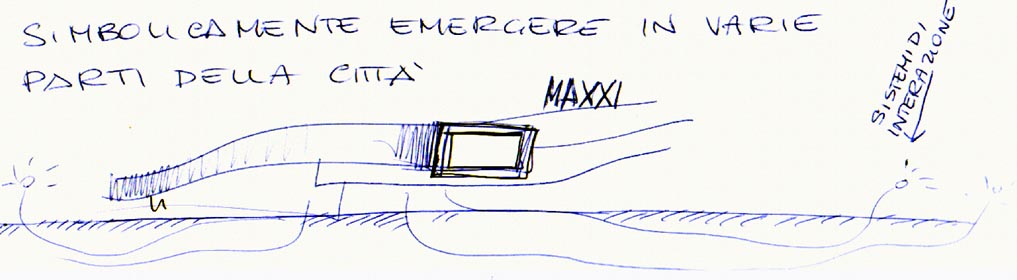 SIMBOLICAMENTE EMERGERE IN VARIE
PARTI DELLA CITTÀ
MAXXI
SISTEMI DI
INTERAZIONE